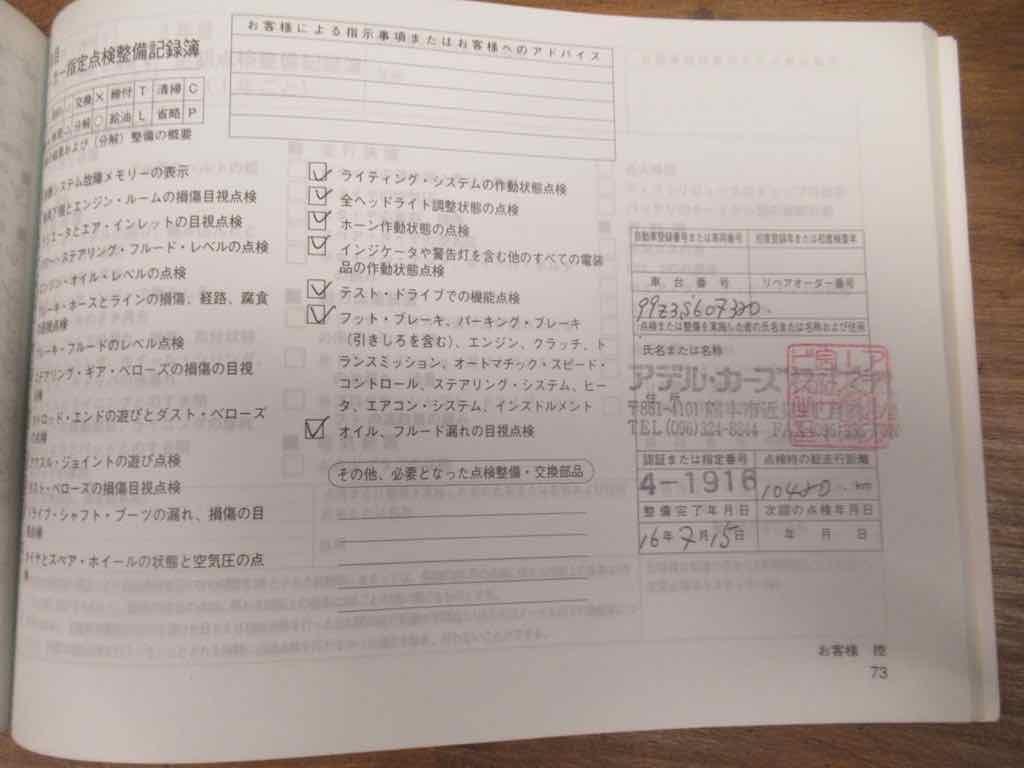 お客様による指示事項またはお客様へのアドバイス
指定点検整備記録簿
交換 × 締付 T 清掃 C
分解 ○ 給油 L 省略 P
および（分解）整備の概要
システム故障メモリーの表示
とエンジン・ルームの損傷目視点検
とエア・インレットの目視点検
ステアリング・フルード・レベルの点検
エンジン・オイル・レベルの点検
ブレーキ・ホースとラインの損傷、経路、腐食
の目視点検
ブレーキ・フルードのレベル点検
ステアリング・ギア・ベローズの損傷の目視
タイロッド・エンドの遊びとダスト・ベローズ
の点検
アクスル・ジョイントの遊び点検
ダスト・ベローズの損傷目視点検
ドライブ・シャフト・ブーツの漏れ、損傷の目
視点検
タイヤとスペア・ホイールの状態と空気圧の点
ライティング・システムの作動状態点検
全ヘッドライト調整状態の点検
ホーン作動状態の点検
インジケータや警告灯を含む他のすべての電装
品の作動状態点検
テスト・ドライブでの機能点検
フット・ブレーキ、パーキング・ブレーキ
（引きしろを含む）、エンジン、クラッチ、ト
ランスミッション、オートマチック・スピード・
コントロール、ステアリング・システム、ヒー
タ、エアコン・システム、インストルメント
オイル、フルード漏れの目視点検
その他、必要となった点検整備・交換部品
自動車登録番号または車両番号 初度登録年または初度検査年
車台番号 リペアオーダー番号
99Z3S607320
点検または整備を実施した者の氏名または名称および住所
氏名または名称
アデル・カーズ
住所
〒861-4101 熊本市近見
TEL(096)324-8244 FAX(096)
認証または指定番号 点検時の総走行距離
4-1916 10480 km
整備完了年月日 次回の点検年月日
16年7月15日 年 月 日
お客様 控
73